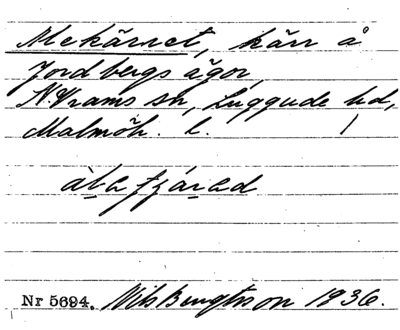 Mekärret, kärr å
Jordbergs ägor,
N. Vrams sn, Luggude hd,
Malmöh. l.
Nr 5694. Nils Bengtsson 1936.